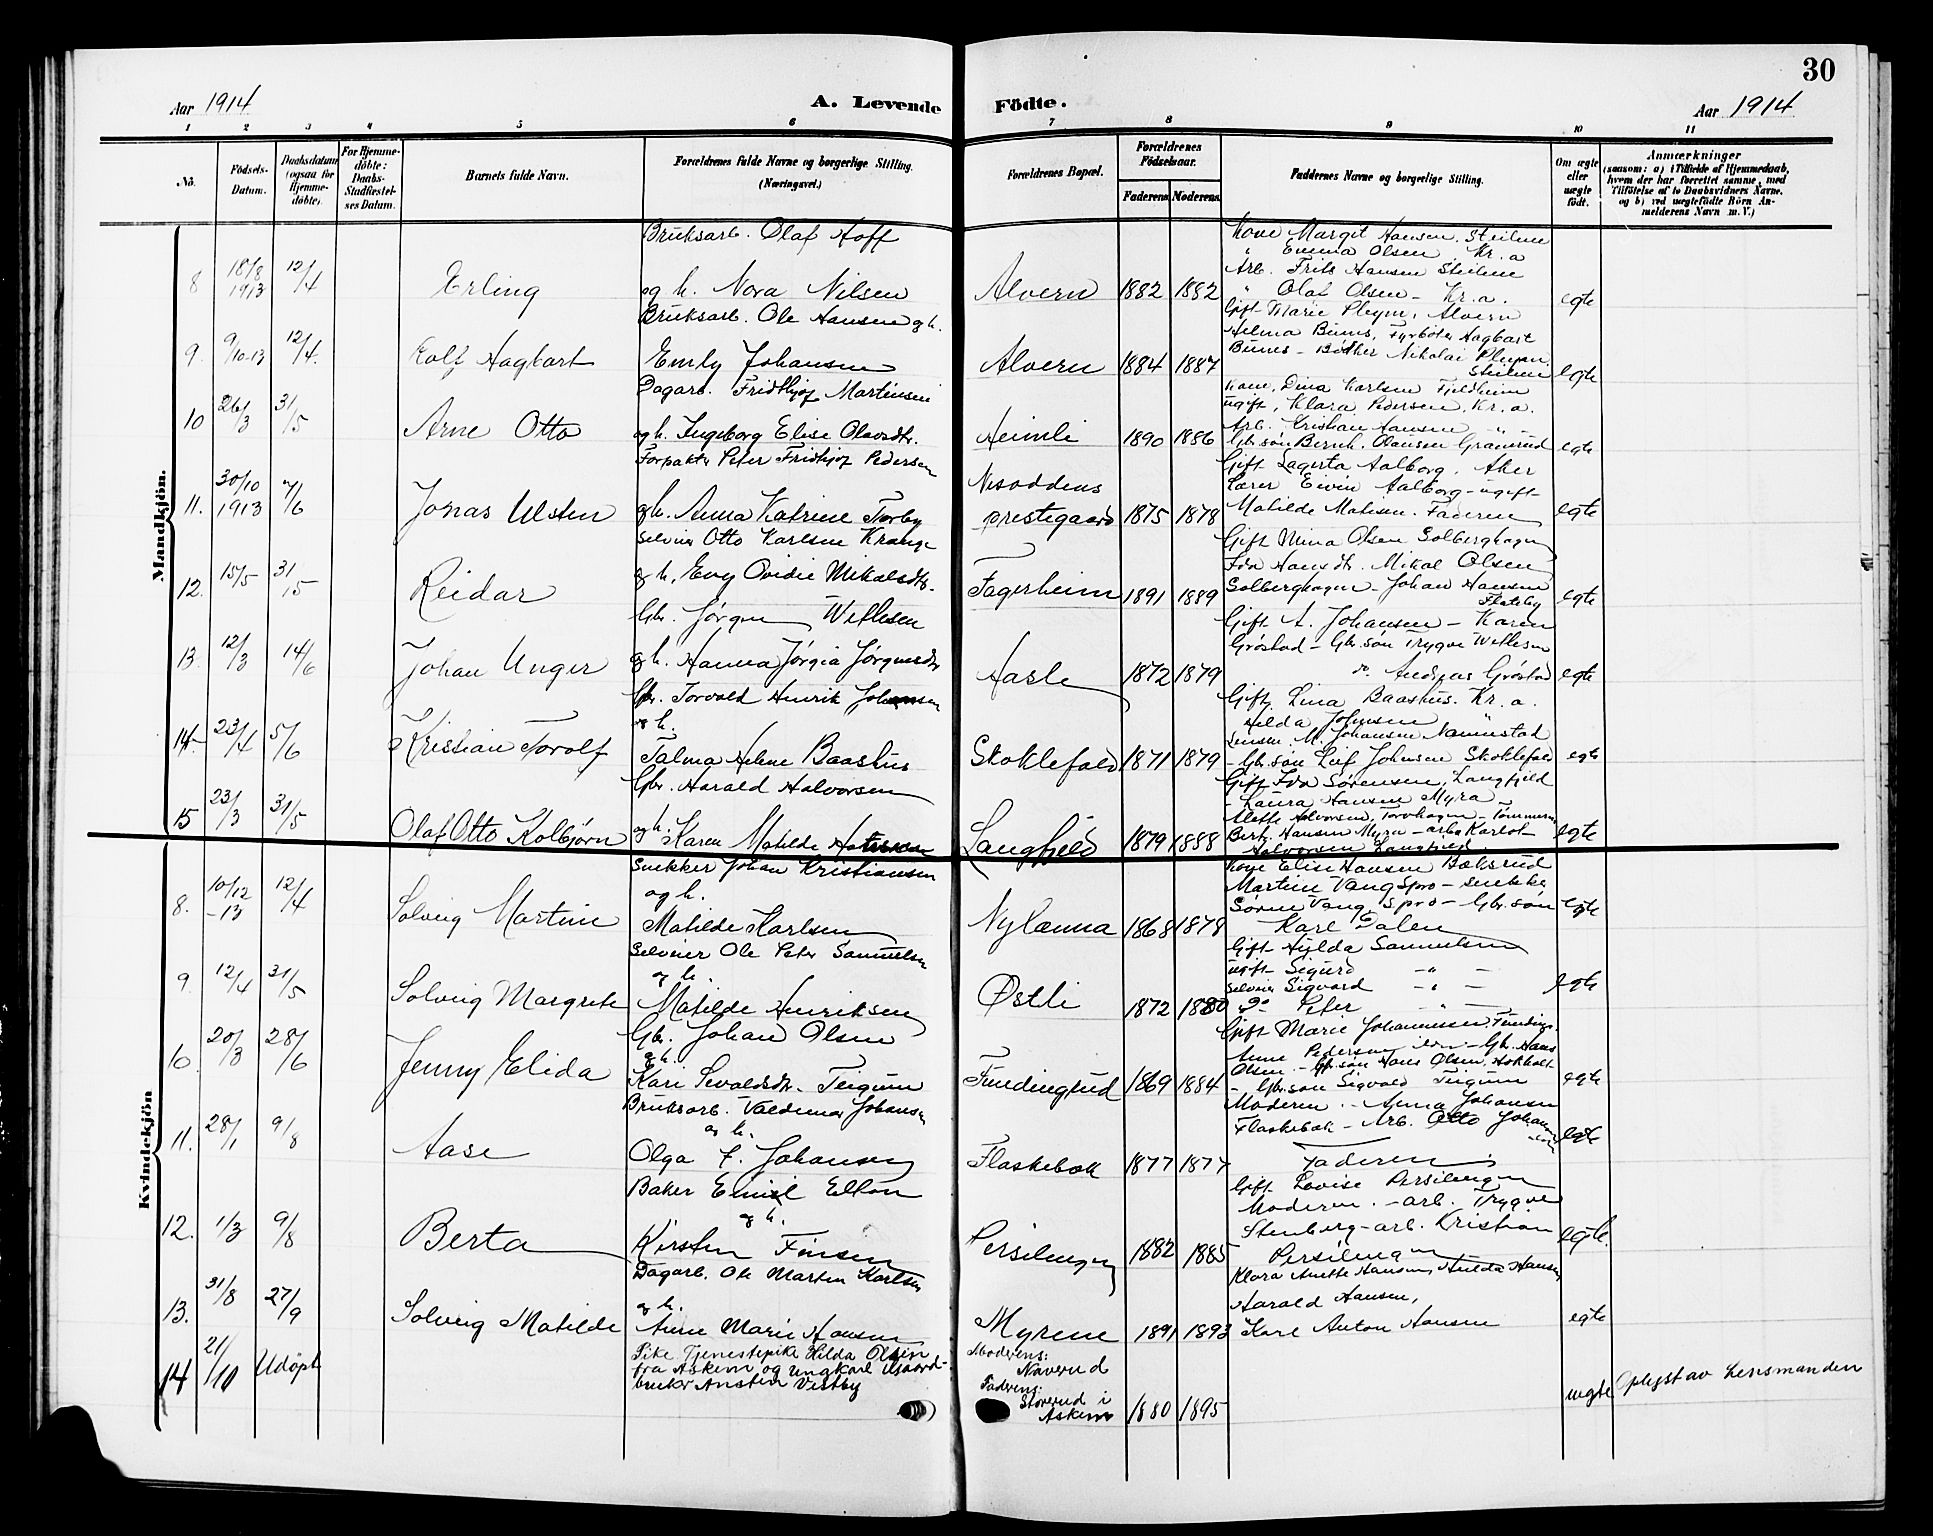 30
Aar 1914 A. Levende Födte. Aar 1914
1 2 3 4 5 6 7 8 9 10 11
No. Födsels-Datum. Daabsdatum (ogsaa for Hjemme-döbte). For Hjemme-döbte: Daabs-Stadfæstel-ses Datum. Barnets fulde Navn. Forældrenes fulde Navne og borgerlige Stilling. (Næringsvei.) Forældrenes Bopæl. Forældrenes Födselsaar. Faderens Moderens Faddernes Navne og borgerlige Stilling. Om ægte eller uægte födt. Anmærkninger (saasom: a) i Tilfælde af Hjemmedaab, hvem der har forrettet samme, med Tilföielse af to Daabsvidners Navne, og b) ved uægtefödte Börn An-melderens Navn m. V.)
Mandkjön.
8 18/8 1913 12/4 Erling
Bruksarb. Olaf Hoff
og h. Nora Nilsen
Alvern 1882 1882
Kone Margit Hansen, Steilene
" Emma Olsen Kr.a
Arb. Frits Hansen Steilene
" Olaf Olsen - Kr.a.
egte
9. 9/10-13 12/4. Rolf Hagbart
Bruksarb. Ole Hansen og h.
Emly Johansen
Alvern 1884 1887
Gift Marie Pleym, Alvern
Helma Bunes, Fyrbøter Hagbart
Bunes - Bødker Nikolai Pleym
Steilene
egte
10 26/3 31/5 Arne Otto
Dagarb. Fridthjof Martinsen
og h. Ingeborg Elise Olavsdtr.
Heimli 1890 1886
Kone, Dina Karlsen Fjeldheim
ugift, Klara Pedersen, Kr.a.
Arb. Kristian Hansen " -
Gbr.søn Bernh. Olausen Granerud
egte
11. 30/10 1913 7/6 Jonas Ulsten
Forpakter Peter Fridthjof Pedersen
og h. Anna Katrine Torby
Nesoddens
prestegaard 1875 1878
Gift Lagerta Aalborg, Aker
Lærer Eivin Aalborg - ugift
Matilde Matisen. Faderen
egte
12. 15/5 31/5 Reidar
Selveier Otto Karlsen Krange
og h. Evy Ovidie Mikalsdtr.
Fagerheim 1891 1889
Gift Mina Olsen Solberghagen
Ida Hansdtr. Mikal Olsen
Solberghagen - Johan Hansen
Flateby
egte
13. 12/3 14/6 Johan Unger
Gbr. Jørgen Wetlesen
og h. Hanna Jørgia Jørgensdtr
Hasle 1872 1879
Gift A. Johansen - Karen
Grøstad - Gbr.søn Trygve Wetlesen
do. Andreas Grøstad
egte
14. 23/4 5/6 Kristian Torolf
Gbr. Torvald Henrik Johansen
og h.
Talma Helene Baashus
Skoklefald 1871 1879
Gift, Lina Baashus. Kr.a.
Hilda Johnsen "
M. Johansen
- Gbr.søn Leif Johnsen Skoklefald
egte
15 23/3 31/5 Olaf Otto Kolbjørn
Gbr. Harald Halvorsen
og h. Karen Matilde
Langfjeld 1879 1888
Gift Ida Sørensen, Langfjeld
- Laura Hansen Myra
Halvorsen, Torvhagen - Tømmerm.
Hansen Myra - arb. Karlot
Halvorsen Langfjeld.
egte
Kvindekjön
8. 10/12 -13 12/4 Solveig Martine
Snekker Johan Kristiansen
og h.
Matilde Karlsen
Nylænna 1868 1878
Kone Elise Hansen Bakerud
Martine Vangspro - snekker
Søren Vangspro - Gbr.søn
Karl Dalen
egte
9. 12/4 31/5 Solveig Margrete
Selveier Ole Peter Samuelsen
og h.
Matilde Henriksen
Østli 1872 1880
Gift Hulda Samuelsen
ugift Sigurd -"- -
selveier Sigvard -"- -
Do Peter -"-
egte
10. 20/3 28/6 Jenny Elida
Gbr. Johan Olsen
og h.
Kari Sevaldsdtr. Teigum
Fundingrud 1869 1884
Gift Marie Johannessen
Anne Pedersen - Gbr. Hans
Olsen - Gbr.søn Hans Olsen,
- Gbr.søn Sigvald Teigum
egte
11. 28/1 9/8 Aase
Bruksarb. Valdemar Johansen
og h.
Olga F. Johansen
Flaskebæk 1877 1877
Moderen - Anna Johansen
Flaskebæk - Arb. Otto Johansen
Faderen
egte
12. 1/3 9/8 Berta
Baker Emil Elton
og h.
Kirsten Finsen
Persilengen 1882 1885
Gift Lovise Persilengen
Moderen. - arb. Trygve
Stenberg - arb. Kristian
Persilengen
egte.
13. 31/8 27/9 Solveig Matilde
Dagarb. Ole Marten Karlsen
og h.
Anne Marie Hansen
Myrene 1891 1893
Klara Anette Hansen, Hulda Hansen
Harald Hansen,
Karl Anton Hansen
egte
14 21/10 Udöpt
Pike Tjenestepike Hilda Olsen
fra Askim og ungkarl
bruker Ansten Vestby
Moderens:
Naverud
Faderens:
Storerud i
Askim
1880 1895
uegte Oplyst av Lensmanden